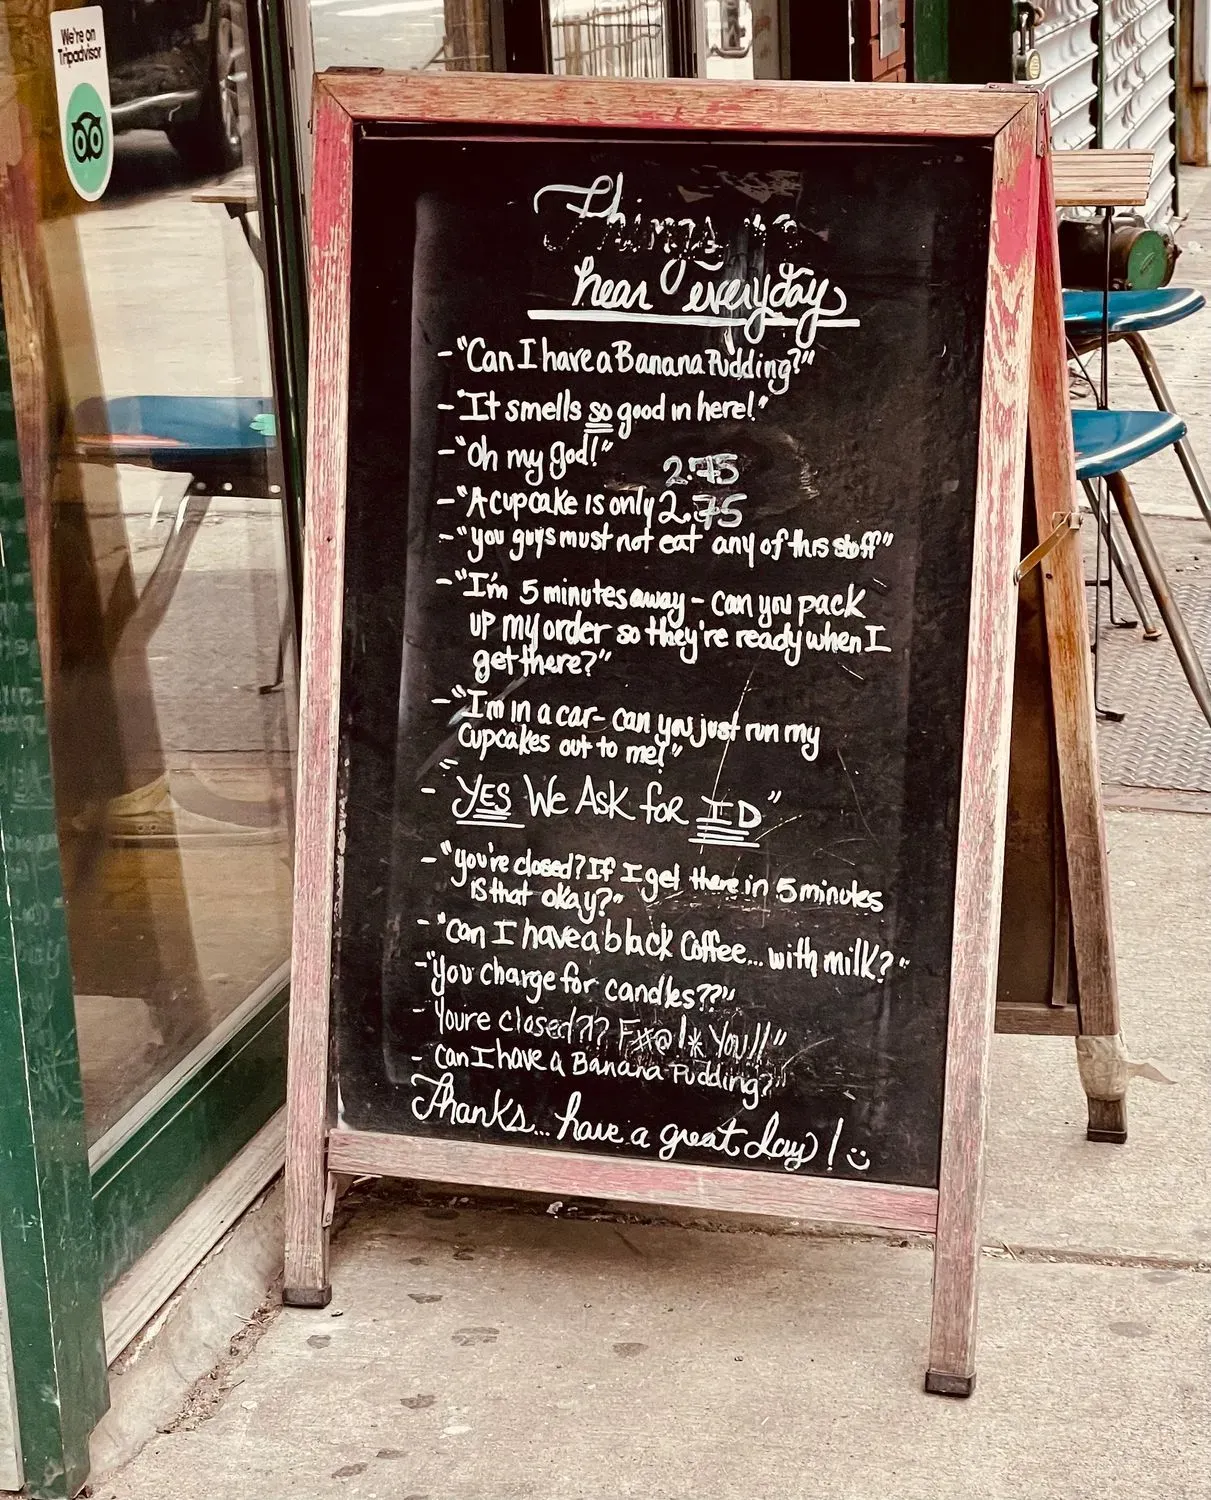 We're on
Tripadvisor
Things we
hear everyday
- "Can I have a Banana Pudding?"
- "It smells so good in here!"
- "Oh my god!"
2.75
- "A cupcake is only 2.75
- "you guys must not eat any of this stuff"
- "I'm 5 minutes away - can you pack
up my order so they're ready when I
get there?"
- "I'm in a car - can you just run my
cupcakes out to me?"
- "YES We Ask for ID"
- "you're closed? If I get there in 5 minutes
is that okay?"
- "can I have a black Coffee... with milk?"
- "You charge for candles??"
- Youre closed?? F#@!* You!!"
- can I have a Banana Pudding?"
Thanks... have a great day! :)